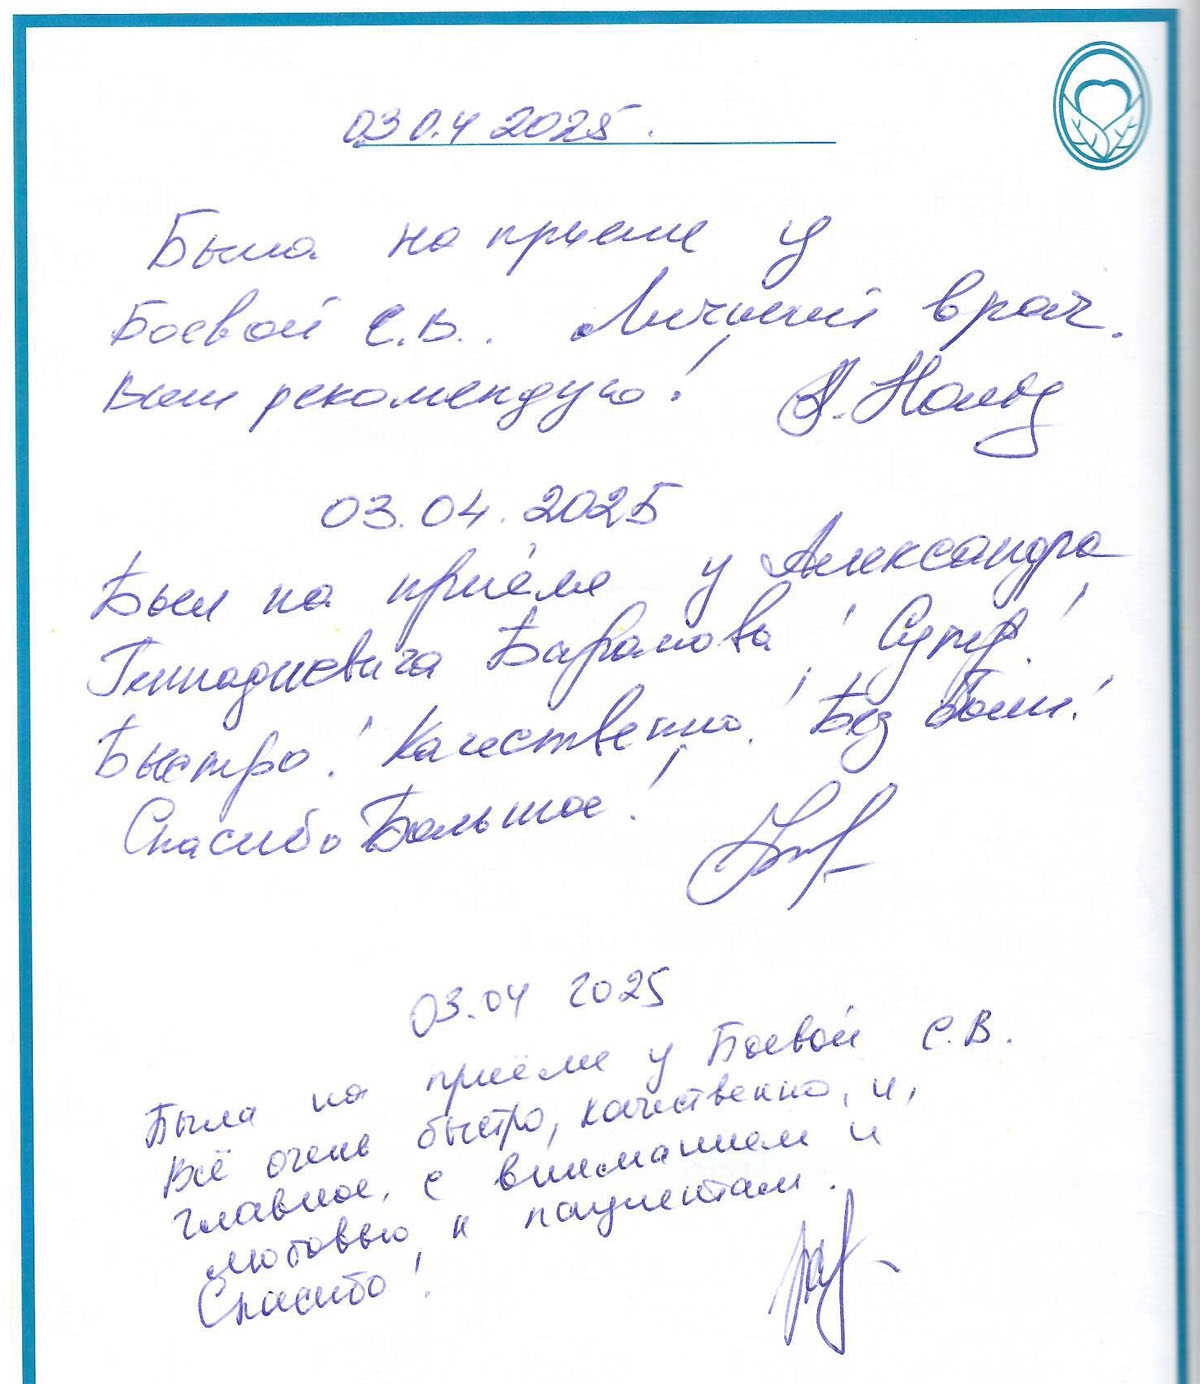 03 0.4 2025.
Была на приеме у
Боевой С.В.. Лучший врач.
Всем рекомендую!
03.04.2025
Был на приёме у Александра
Геннадиевича Баранова! Супер!
Быстро! Качественно! Без Боли!
Спасибо Большое!
03.04 2025
Была на приёме у Боевой С.В.
Всё очень быстро, качественно, и,
главное, с вниманием и
любовью к пациентам.
Спасибо!